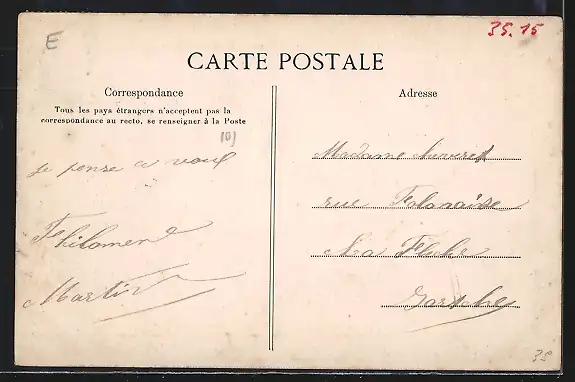 E
35.15
CARTE POSTALE
Correspondance
Tous les pays étrangers n'acceptent pas la
correspondance au recto, se renseigner à la Poste
101
je pense a vous
Philomene
Martin
Adresse
Madame
rue
La Fleche
Sarthe
35